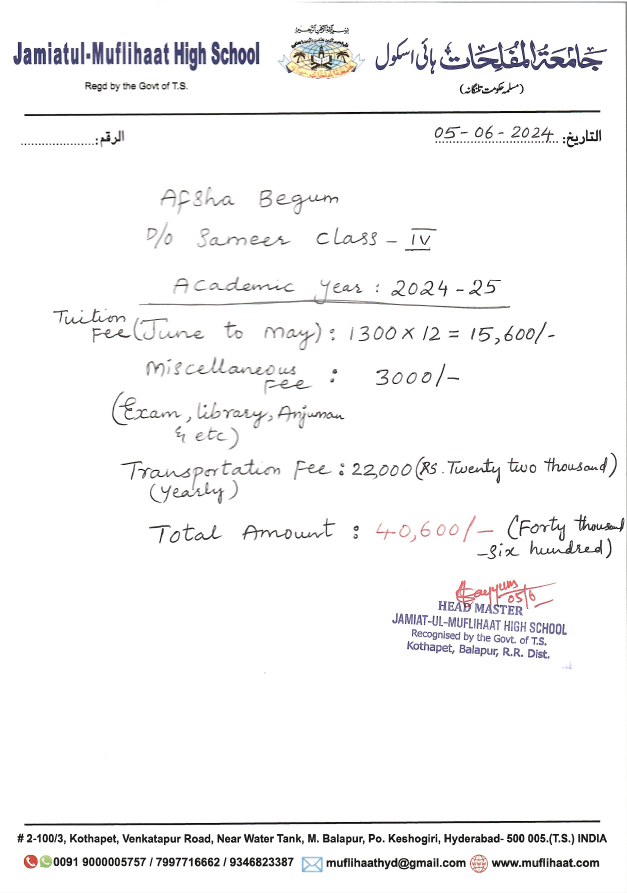 Jamiatul-Muflihaat High School
Regd by the Govt of T.S.
جامعة المفلحات ہائی اسکول
(مسلمہ حکومت تلنگانہ)
الرقم:
التاريخ: 05-06-2024
Afsha Begum
D/o Sameer Class - IV
Academic Year : 2024-25
Tuition
Fee (June to May) : 1300 x 12 = 15,600/-
Miscellaneous
Fee : 3000/-
(Exam, library, Anjuman
& etc)
Transportation Fee : 22,000 (Rs. Twenty two thousand)
(Yearly)
Total Amount : 40,600/- (Forty thousand
-six hundred)
05/6
HEAD MASTER
JAMIAT-UL-MUFLIHAAT HIGH SCHOOL
Recognised by the Govt. of T.S.
Kothapet, Balapur, R.R. Dist.
# 2-100/3, Kothapet, Venkatapur Road, Near Water Tank, M. Balapur, Po. Keshogiri, Hyderabad- 500 005.(T.S.) INDIA
0091 9000005757 / 7997716662 / 9346823387 muflihaathyd@gmail.com www.muflihaat.com